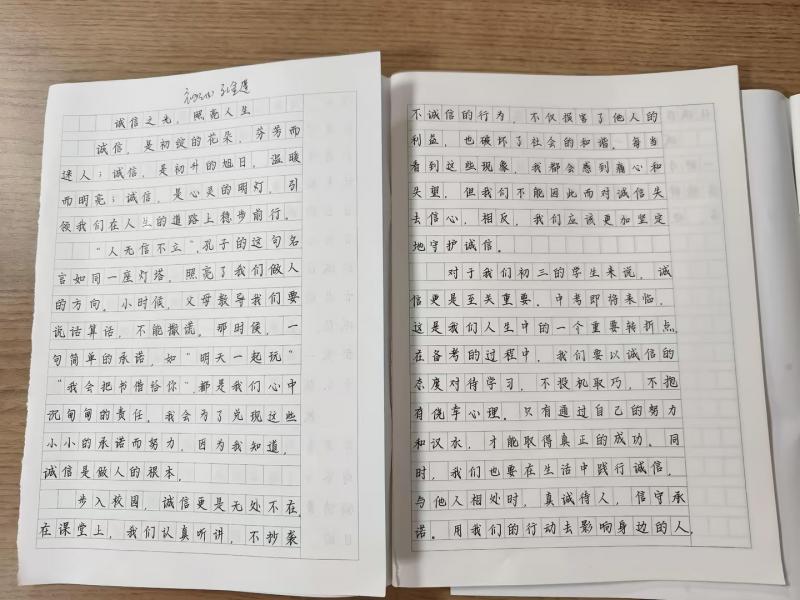 诚信之光，照亮人生
诚信，是初绽的花朵，芬芳而
迷人；诚信，是初升的旭日，温暖
而明亮；诚信，是心灵的明灯，引
领我们在人生的道路上稳步前行。
"人无信不立"，孔子的这句名
言如同一座灯塔，照亮了我们做人
的方向。小时候，父母教导我们要
说话算话，不能撒谎。那时候，一
句简单的承诺，如"明天一起玩"
"我会把书借给你"，都是我们心中
沉甸甸的责任。我会为了兑现这些
小小的承诺而努力，因为我知道，
诚信是做人的根本。
步入校园，诚信更是无处不在，
在课堂上，我们认真听讲，不抄袭
不诚信的行为，不仅损害了他人的
利益，也破坏了社会的和谐。每当
看到这些现象，我都会感到痛心和
失望，但我们不能因此而对诚信失
去信心，相反，我们应该更加坚定
地守护诚信。
对于我们初三的学生来说，诚
信更是至关重要。中考即将来临，
这是我们人生中的一个重要转折点，
在备考的过程中，我们要以诚信的
态度对待学习，不投机取巧，不抱
有侥幸心理。只有通过自己的努力
和汗水，才能取得真正的成功。同
时，我们也要在生活中践行诚信，
与他人相处时，真诚待人，信守承
诺。用我们的行动去影响身边的人，